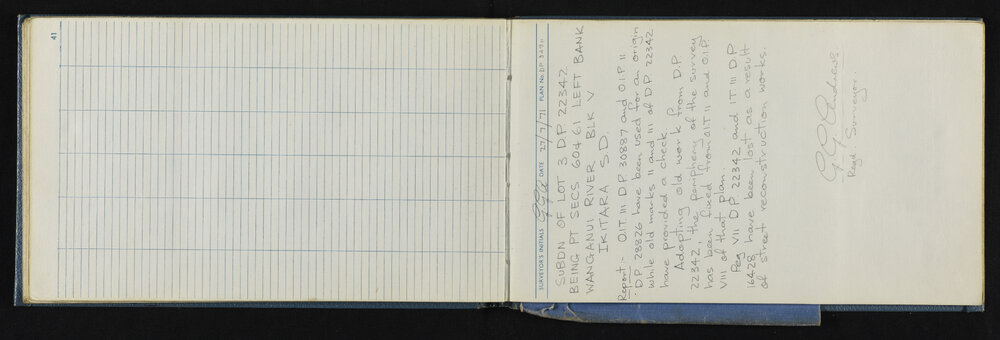 41
SURVEYOR'S INITIALS GGA DATE 27/7/71 PLAN No. DP
SUBDN OF LOT 3 D.P. 22342
BEING PT SECS 60 & 61 LEFT BANK
WANGANUI RIVER BLK V
IKITARA S.D.
Report:- OIT III DP. 30887 and O.I.P. II
DP 28826 have been used for an origin
while old marks II and III of D.P. 22342
have provided a check.
Adopting old work from D.P
22342, the periphery of the survey
has been fixed from OIT II and O.I.P.
VIII of that plan.
Peg VII D.P. 22342 and IT III D.P.
16428 have been lost as a result
of street reconstruction works.
G G Andrews
Regd. Surveyor.